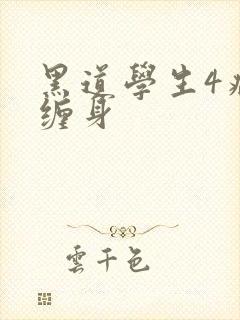 黑道學生4
缠身
雲千色